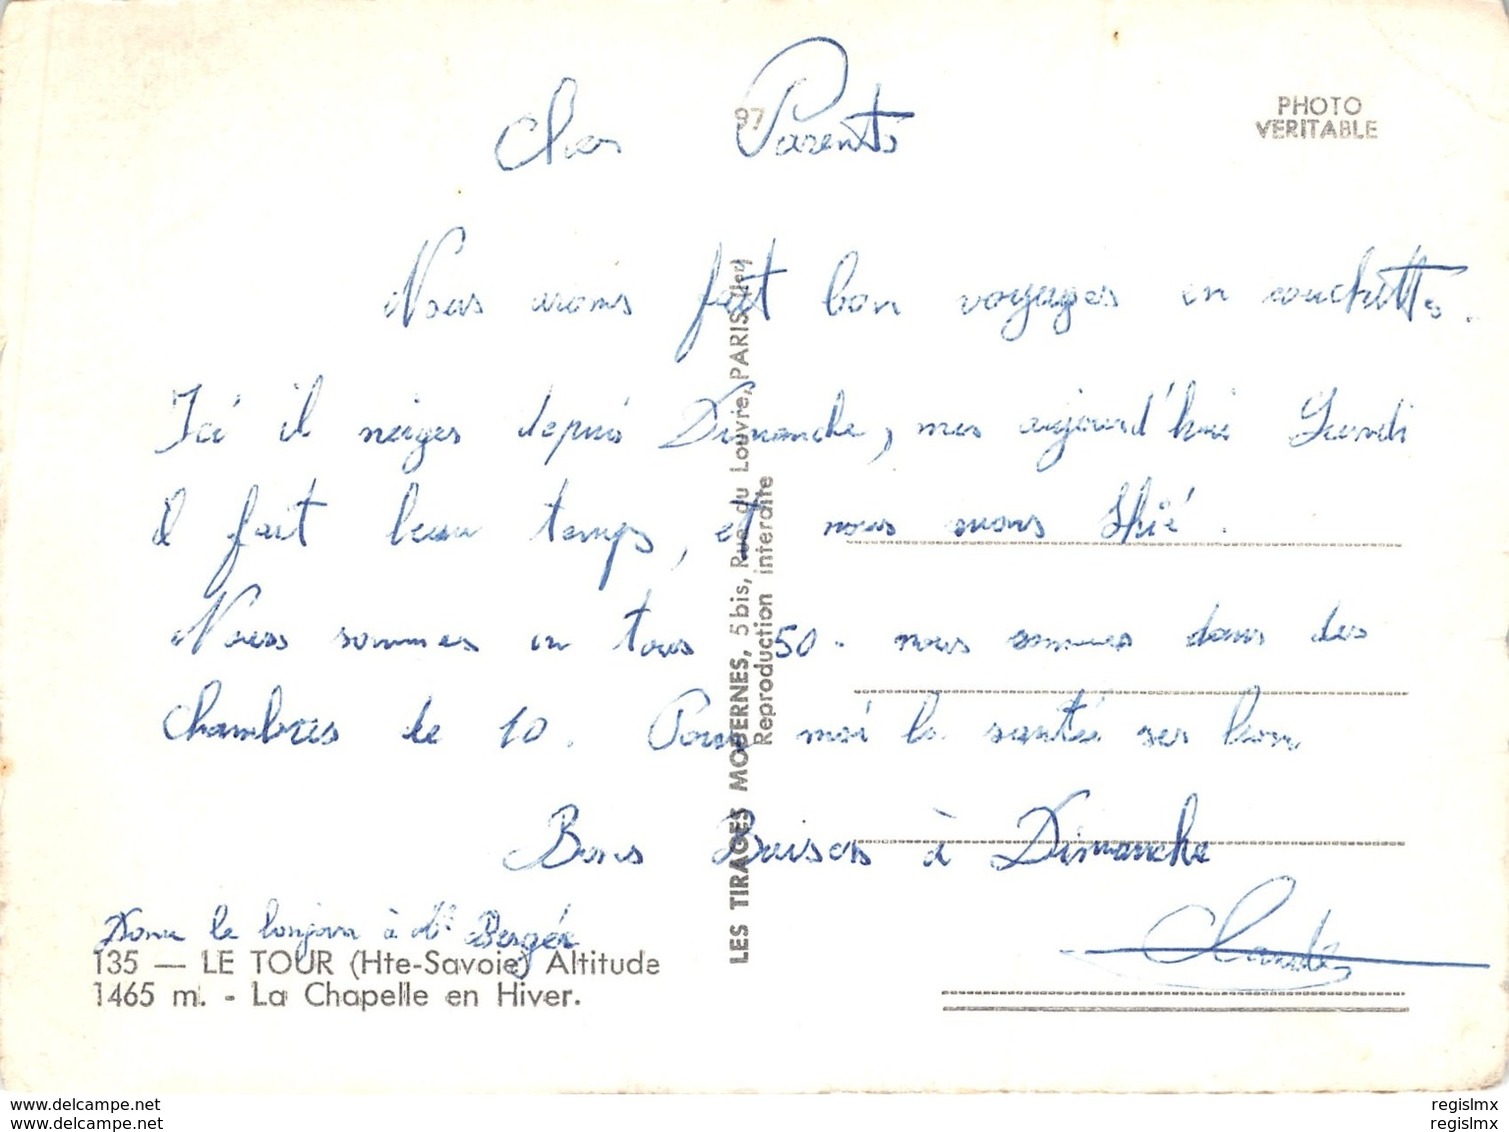 Chers Parents
97
PHOTO
VERITABLE
Nous avons fait bon voyages en couchettes.
Ici il neiges depuis Dimanche, mes aujourd'hui Lundi
il fait beau temps, et nous avons skié.
Nous sommes en tous 50. nous sommes dans des
chambres de 10. Pour moi la santé ses bon
Bons Baisers à Dimanche
Donne le bonjour à Mr Berger
Claude
135 — LE TOUR (Hte-Savoie) Altitude
1465 m. - La Chapelle en Hiver.
LES TIRAGES MODERNES, 5 bis, Rue du Louvre, PARIS
Reproduction interdite
www.delcampe.net
www.delcampe.net
regislmx
regislmx